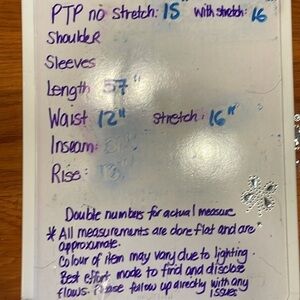 PTP no stretch: 15" with stretch: 16
Shoulder
Sleeves
Length 57"
Waist 12" stretch: 16"
Inseam:
Rise:
Double numbers for actual measure
* All measurements are done flat and are
approximate.
Colour of item may vary due to lighting.
Best effort made to find and disclose
flaws. Please follow up directly with any
issues